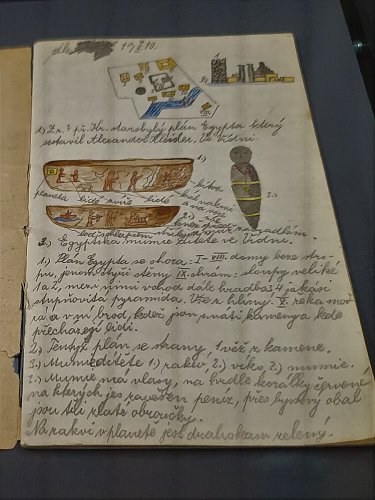 19 10.
2.)
1.) Z r. ? př. Kr. starobylý plán Egypta který
sestavil Alexander Ve Vídni.
1.)
bitva
planeta lidé zvíře lidé
král nalevo
a na voze
3.)
2.)
2. Egyptská mumie dítěte ve Vídni.
1.) Plán Egypta se shora: I–VIII. domy beze stro-
pu, jenom čtyři stěny IX. chrám: sloupy veliké
1 a 2, mezi nimi vchod dále hradba 3 4 jakási
stupňovitá pyramida. Vše z hlíny. V. řeka mod-
rá a v ní brod, kdež jsou znáti kameny a kde
přecházejí lidi.
2.) Tentýž plán, se strany, 1 věž z kamene.
3.) Mumie dítěte 1.) rakev 2.) víko, 3.) mumie.
3.) Mumie má vlasy, na hrdle korálky červené
na kterých jest zavěšen peníz, přes byssový obal
jsou tři zlaté obroučky.
Na rakvi v planetě jest drahokam zelený.